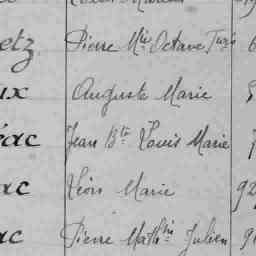 etz Pierre Mie Octave
ux Auguste Marie
éac Jean Bte Louis Marie
ac Léon Marie 92
ac Pierre Mathin Julien